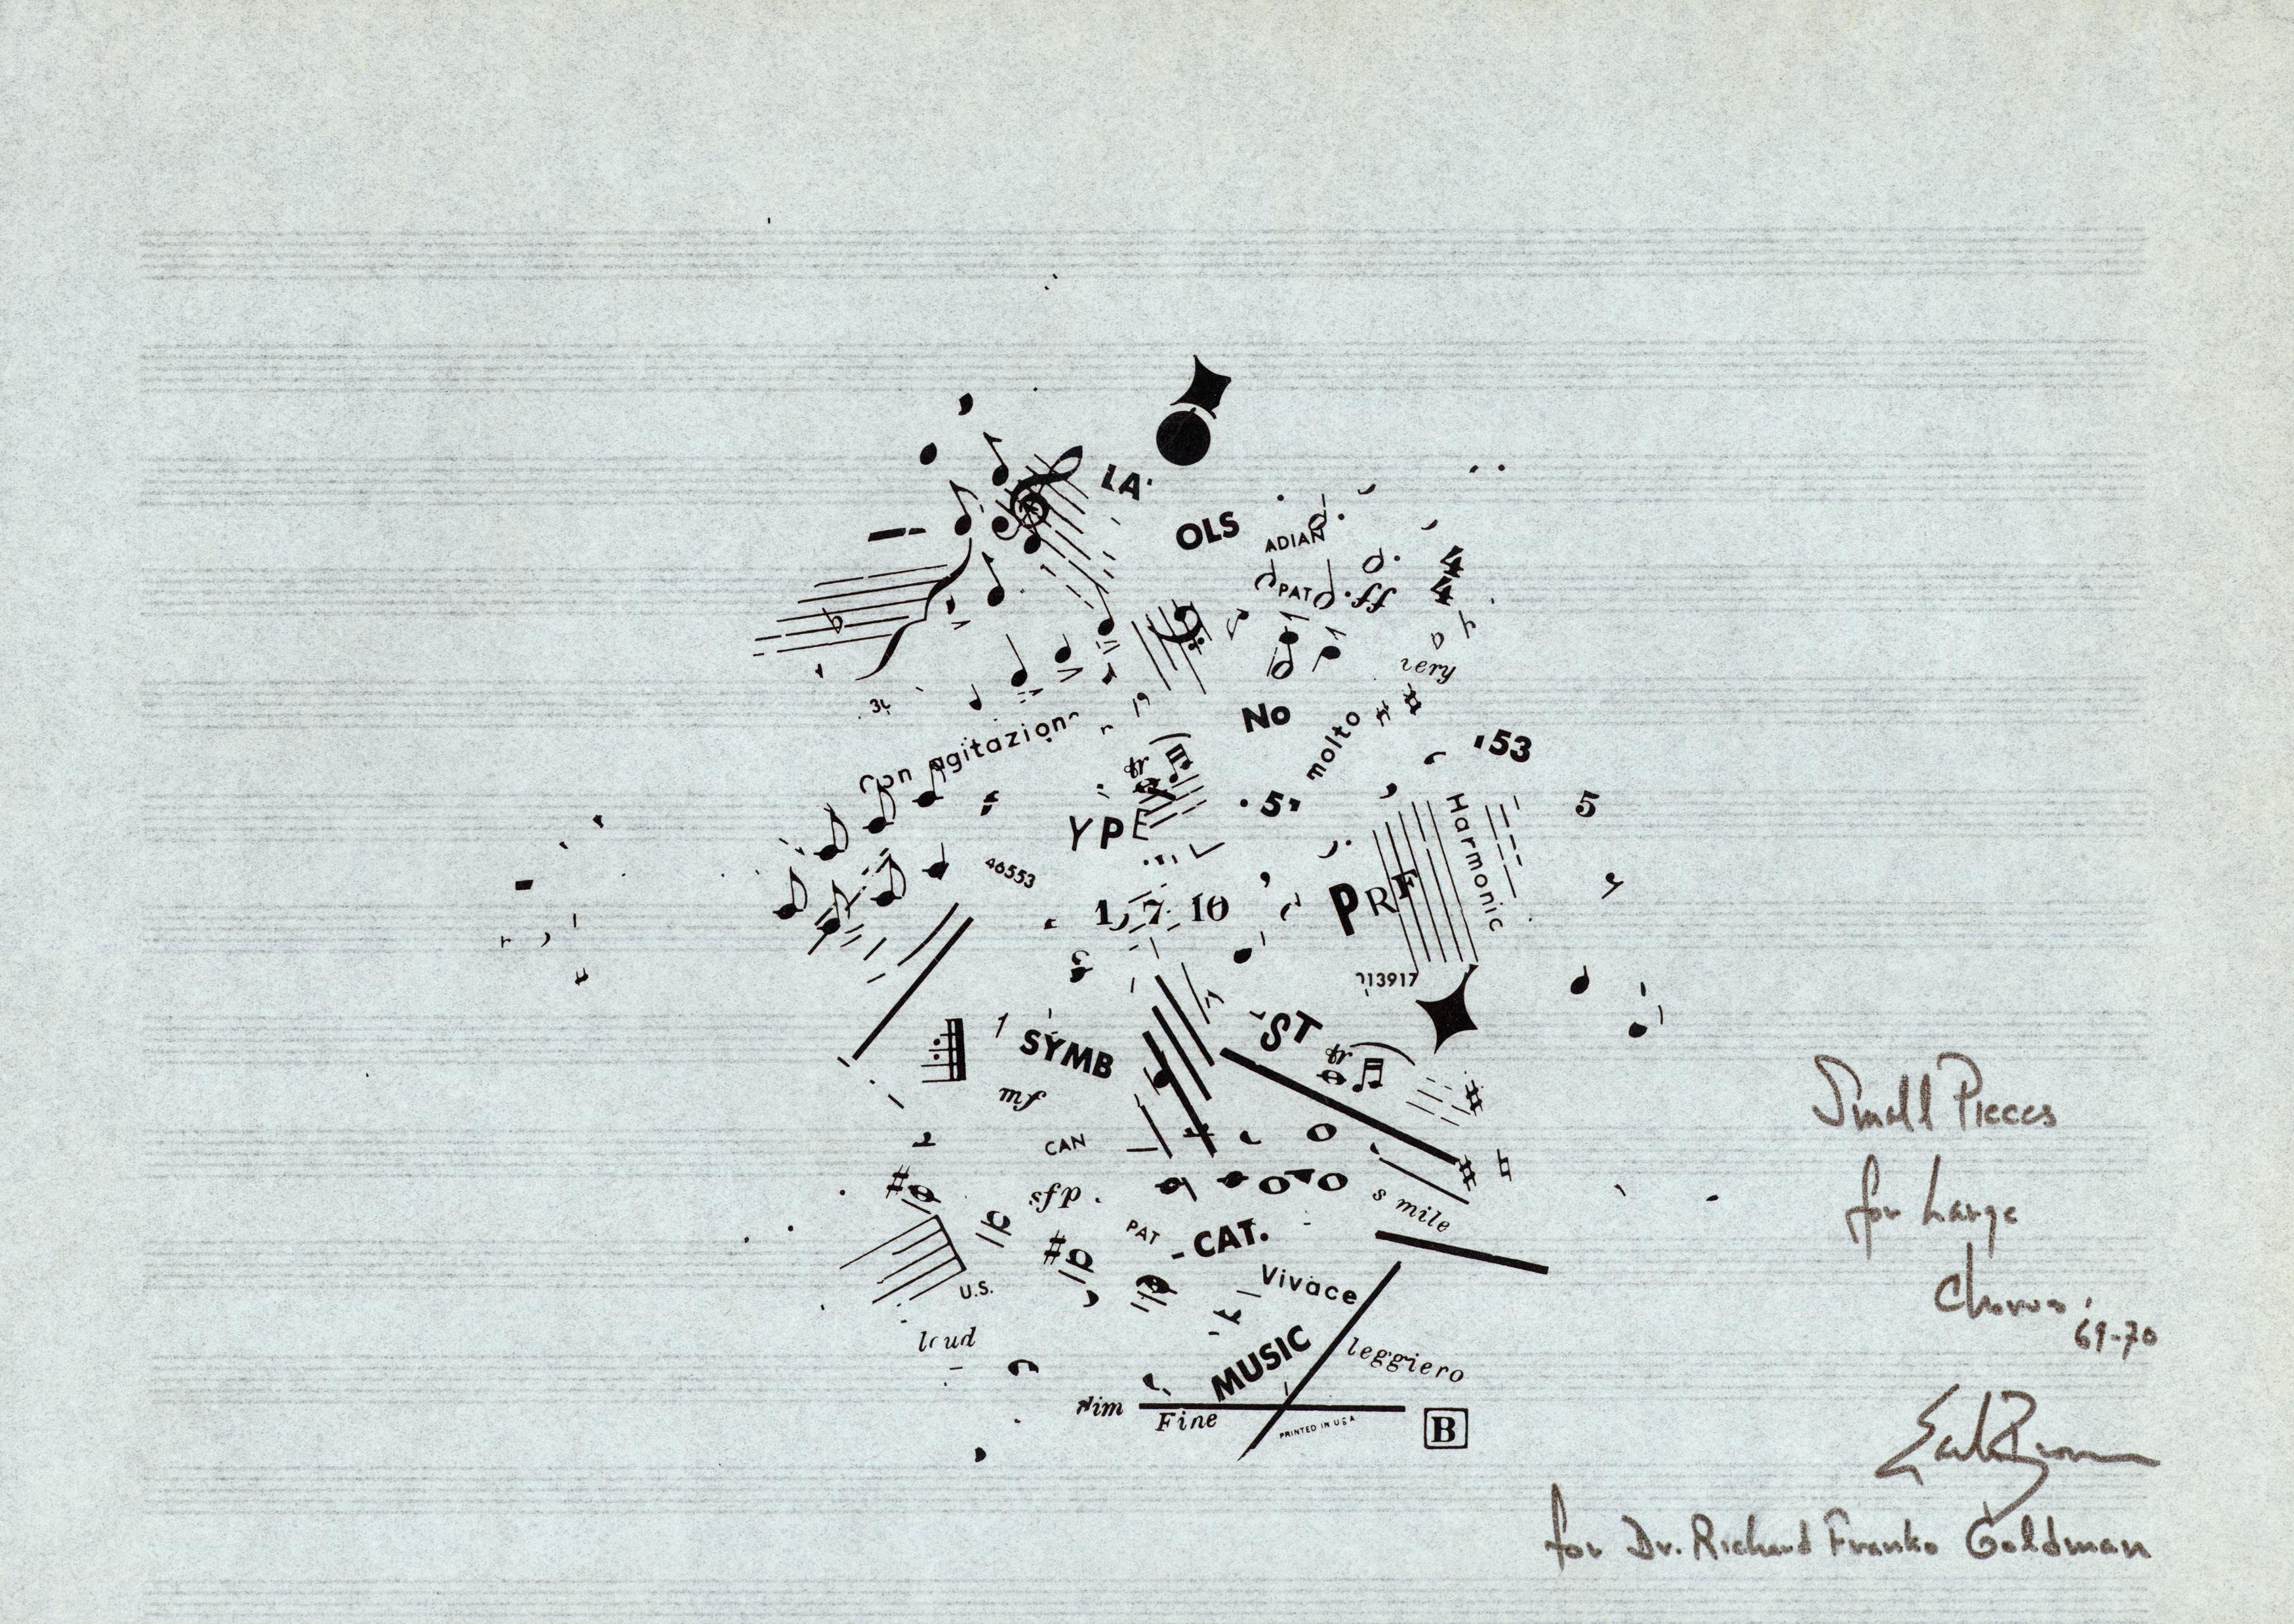 LA.
OLS
ADIAN
PAT
ff
4
4
No
molto
'53
19
tr
5
5
YPE
46553
Harmonic
1, 7 10
PRE
13917
ST
tr
SYMB
mf
CAN
sfp.
s mile
PAT
-CAT.
U.S.
Vivace
MUSIC
leggiero
Fine
PRINTED IN USA
B
Small Pieces
for Large
Chorus.
69-70
Earle Brown
for Dr. Richard Franko Goldman